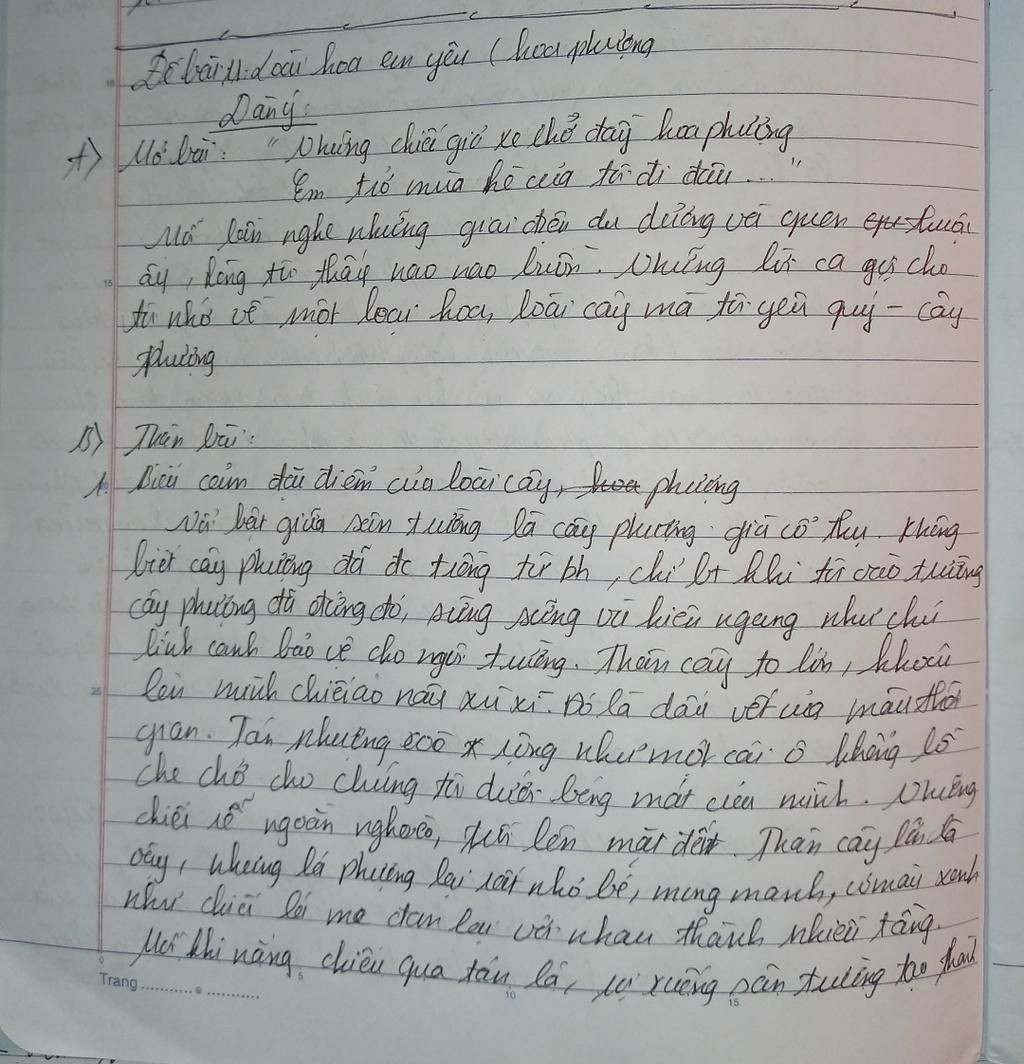 Đề bài 1: Loài hoa em yêu ( hoa phượng
Dàn ý:
A> Mở bài: "Những chiếc giỏ xe chở đầy hoa phượng
Em trở mùa hè của tôi đi đâu..."
Mỗi lần nghe những giai điệu du dương và quen thuộc
ấy, lòng tôi thấy nao nao buồn. Những lời ca gợi cho
tôi nhớ về một loại hoa, loài cây mà tôi yêu quý - cây
phượng
B> Thân bài:
1. Biểu cảm đặc điểm của loài cây, hoa phượng
Nổi bật giữa sân trường là cây phượng già cổ thụ. Không
biết cây phượng đã đc trồng từ bh, chỉ bt khi tôi vào trường
cây phượng đã đứng đó, sừng sững và hiên ngang như chú
lính canh bảo vệ cho ngôi trường. Thân cây to lớn, khoác
lên mình chiếc áo nâu xù xì. Đó là dấu vết của màu thời
gian. Tán phượng rộng như một cái ô khổng lồ
che chở cho chúng tôi dưới bóng mát của mình. Những
chiếc rễ ngoằn nghoèo, trồi lên mặt đất. Thân cây lớn là
vậy, nhưng lá phượng lại rất nhỏ bé, mong manh, có màu xanh
như chiếc lá me đan lại với nhau thành nhiều tầng.
Mỗi khi nắng chiếu qua tán lá, rọi xuống sân trường tạo thành
Trang
5
10
15
10
15
25